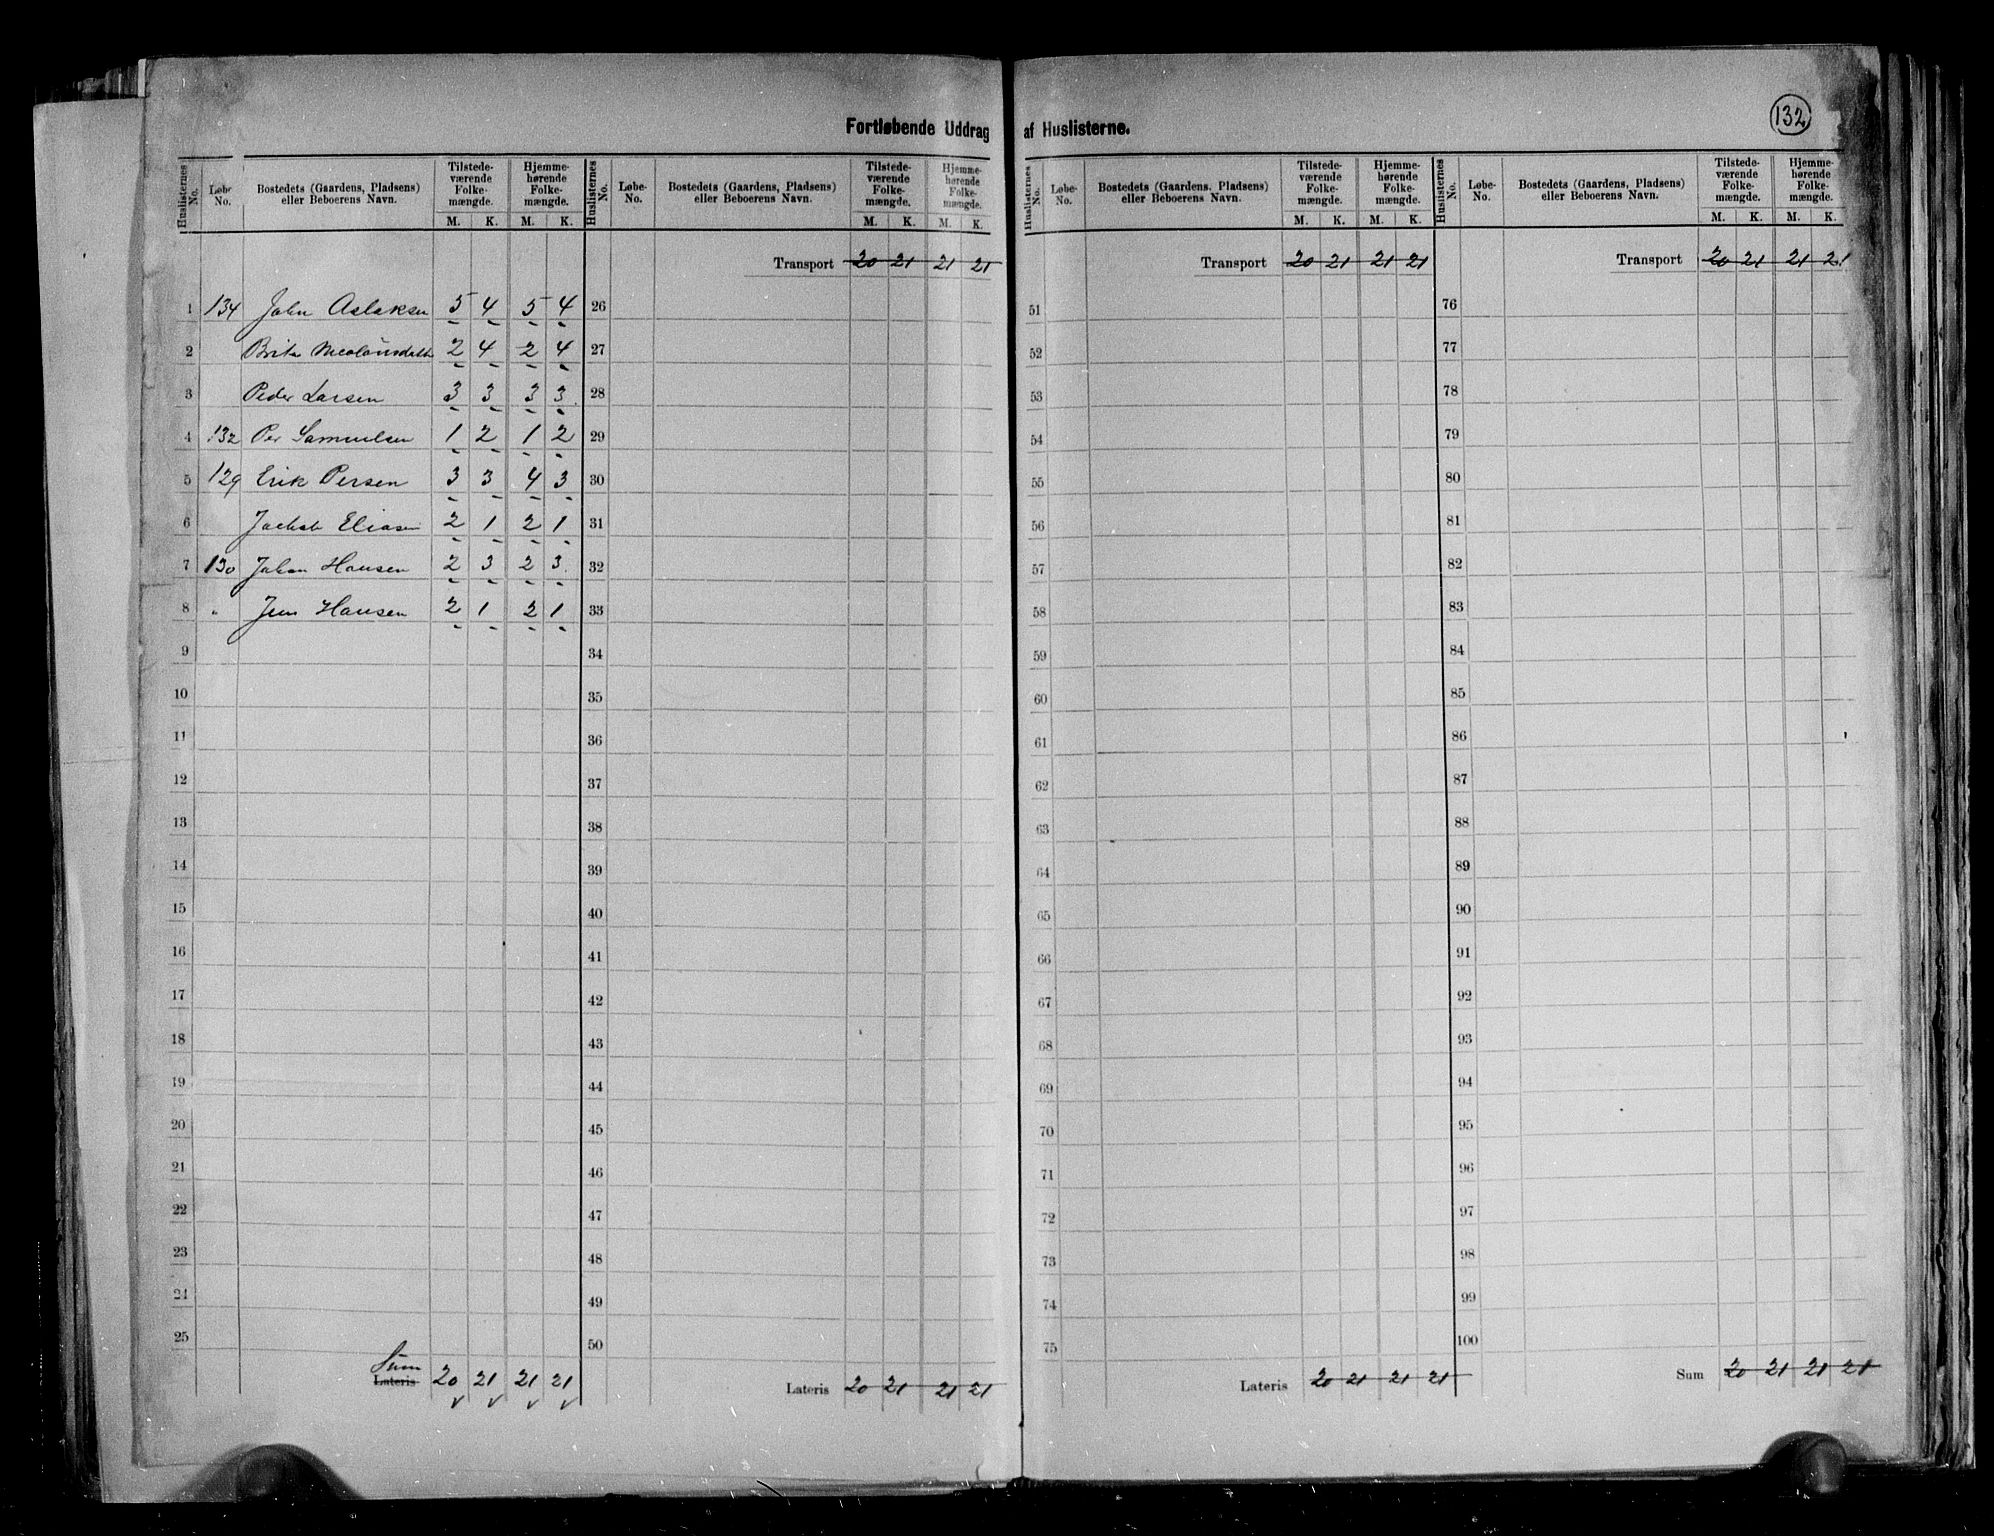 132
Fortløbende Uddrag af Huslisterne.
Huslisternes No. | Løbe-No. | Bostedets (Gaardens, Pladsens) eller Beboerens Navn. | Tilstedeværende Folkemængde. M. K. | Hjemmehørende Folkemængde. M. K.
1 134 John Aslaksen 5 4 5 4
2 Brita 2 4 2 4
3 Peder Larsen 3 3 3 3
4 132 Per Samuelsen 1 2 1 2
5 129 Erik Persen 3 3 4 3
6 Jackob Eliasen 2 1 2 1
7 130 Johan Hansen 2 3 2 3
8 " Jens Hansen 2 1 2 1
9
10
11
12
13
14
15
16
17
18
19
20
21
22
23
24
25
Sum
Lateris 20 21 21 21
Huslisternes No. | Løbe-No. | Bostedets (Gaardens, Pladsens) eller Beboerens Navn. | Tilstedeværende Folkemængde. M. K. | Hjemmehørende Folkemængde. M. K.
Transport 20 21 21 21
26
27
28
29
30
31
32
33
34
35
36
37
38
39
40
41
42
43
44
45
46
47
48
49
50
Lateris 20 21 21 21
Huslisternes No. | Løbe-No. | Bostedets (Gaardens, Pladsens) eller Beboerens Navn. | Tilstedeværende Folkemængde. M. K. | Hjemmehørende Folkemængde. M. K.
Transport 20 21 21 21
51
52
53
54
55
56
57
58
59
60
61
62
63
64
65
66
67
68
69
70
71
72
73
74
75
Lateris 20 21 21 21
Huslisternes No. | Løbe-No. | Bostedets (Gaardens, Pladsens) eller Beboerens Navn. | Tilstedeværende Folkemængde. M. K. | Hjemmehørende Folkemængde. M. K.
Transport 20 21 21 21
76
77
78
79
80
81
82
83
84
85
86
87
88
89
90
91
92
93
94
95
96
97
98
99
100
Sum 20 21 21 21